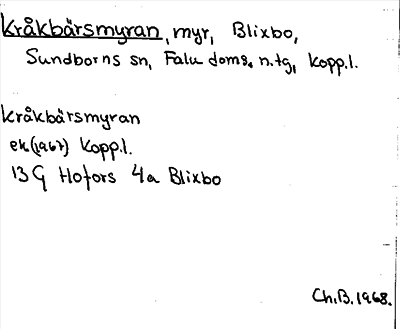 Kråkbärsmyran, myr, Blixbo,
Sundborns sn, Falu doms. n.tg, Kopp.l.
Kråkbärsmyran
ek(1967) Kopp.l.
13 G Hofors 4a Blixbo
Ch.B.1968.